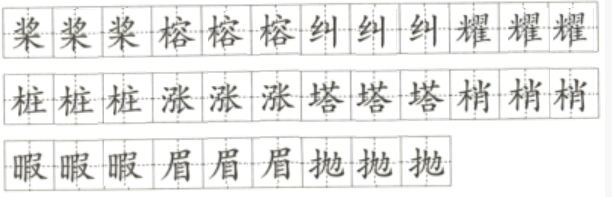 桨桨桨榕榕榕纠纠纠耀耀耀
桩桩桩涨涨涨塔塔塔梢梢梢
暇暇暇眉眉眉抛抛抛